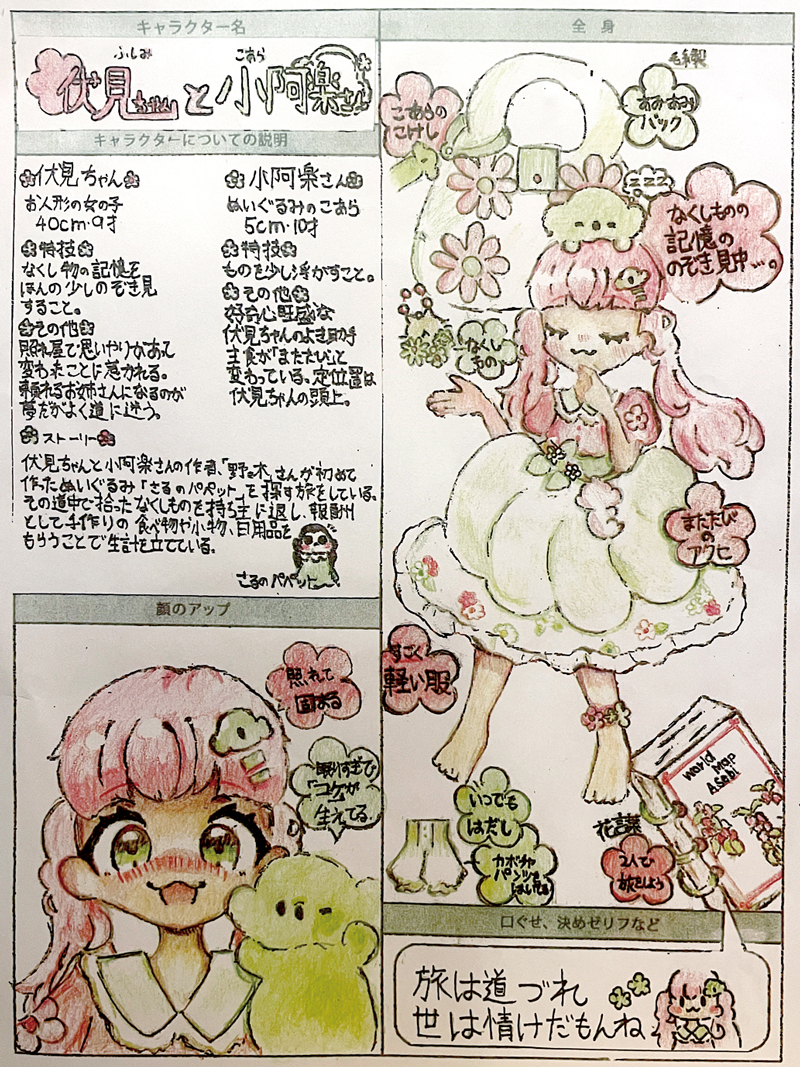 キャラクター名
ふしみ
こあら
伏見ちゃんと小阿楽さん
キャラクターについての説明
伏見ちゃん
お人形の女の子
40cm・9才
特技
なくし物の記憶を
ほんの少しのぞき見
すること。
その他
照れ屋で思いやりがあって
変わったことに惹かれる。
頼れるお姉さんになるのが
夢だがよく道に迷う。
小阿楽さん
ぬいぐるみのこあら
5cm・10才
特技
ものを少し浮かすこと。
その他
好奇心旺盛な
伏見ちゃんのよき助手
主食が「またたび」と
変わっている。定位置は
伏見ちゃんの頭上。
ストーリー
伏見ちゃんと小阿楽さんの作者、「野々木」さんが初めて
作ったぬいぐるみ「さるのパペット」を探す旅をしている。
その道中で拾ったなくしものを持ち主に返し、報酬
として手作りの食べ物や小物、日用品を
もらうことで生計を立てている。
さるのパペット
顔のアップ
照れて
固まる
眠りすぎて
「コケ」が
生えてる
全身
毛糸製
こあらの
こけし
あみあみ
バック
zzz
なくしものの
記憶の
のぞき見中...。
なくし
もの
またたび
の
アクセ
すごく
軽い服
いつでも
はだし
カボチャ
パンツを
はいてる
World
Map
Asobi
花言葉
2人で
旅をしよう
口ぐせ、決めゼリフなど
旅は道づれ
世は情けだもんね